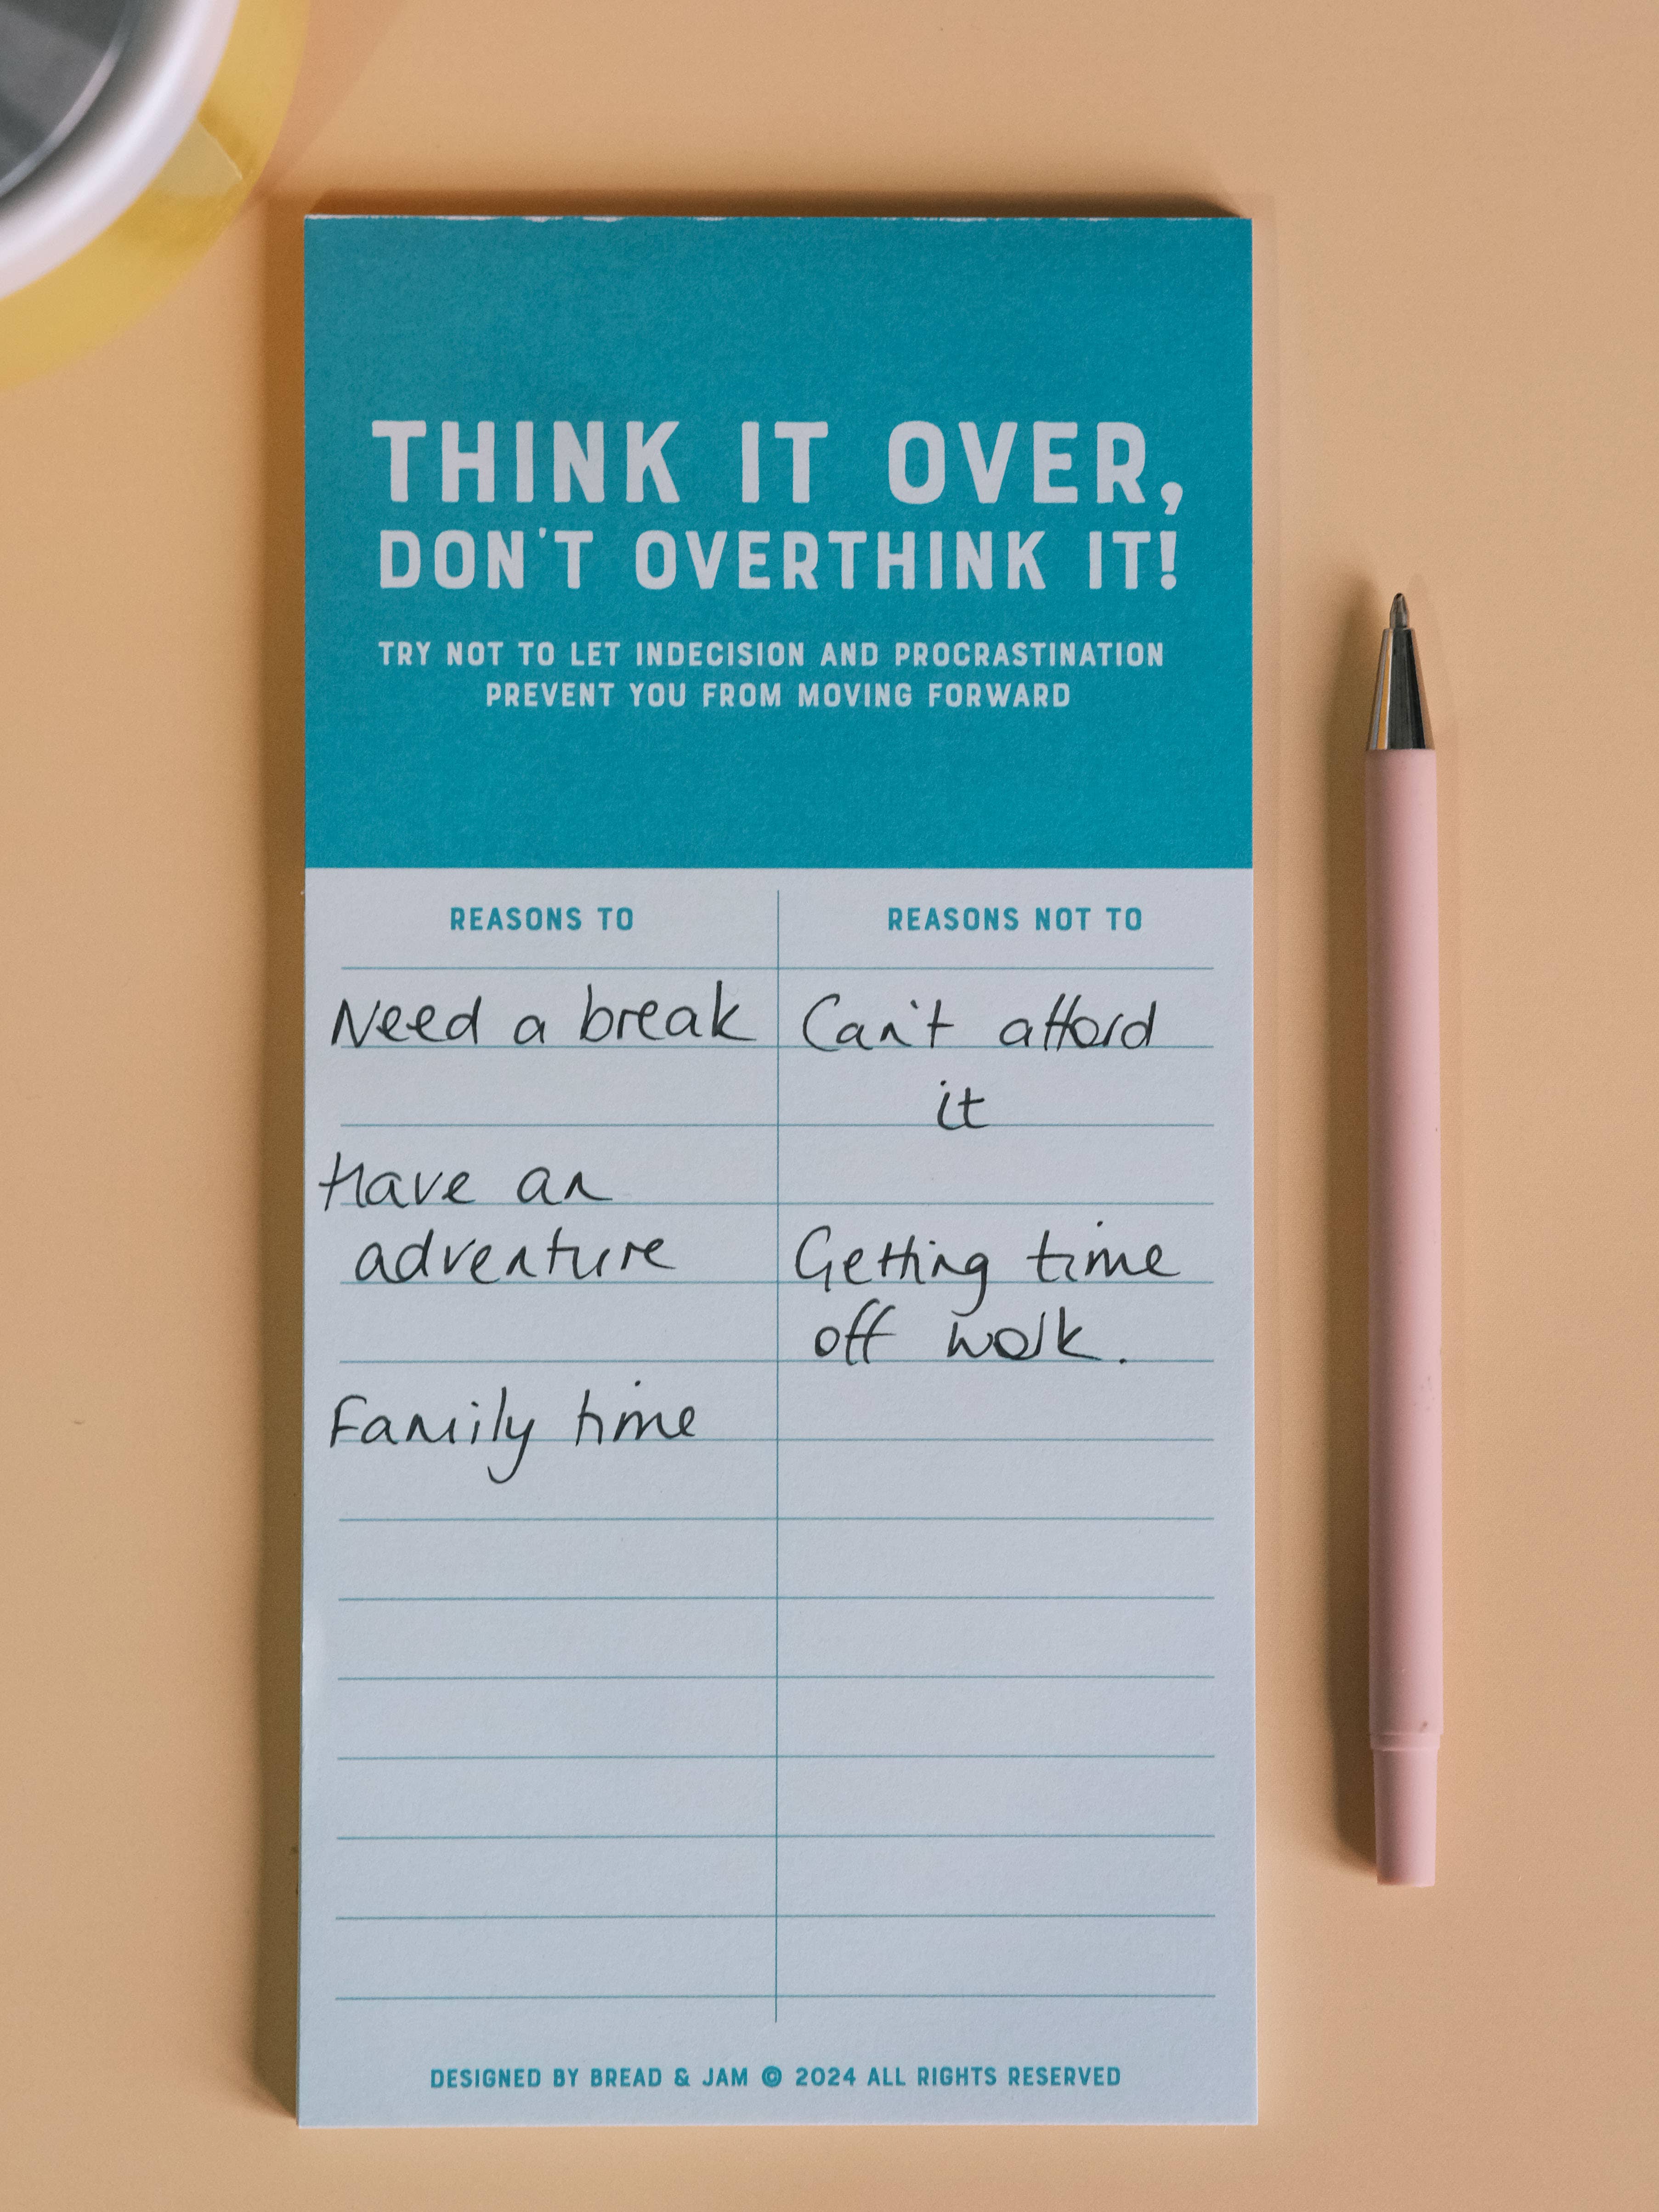 THINK IT OVER,
DON'T OVERTHINK IT!
TRY NOT TO LET INDECISION AND PROCRASTINATION
PREVENT YOU FROM MOVING FORWARD
REASONS TO
Need a break
Have an
adventure
Family time
REASONS NOT TO
Can't afford
it
Getting time
off work.
DESIGNED BY BREAD & JAM © 2024 ALL RIGHTS RESERVED